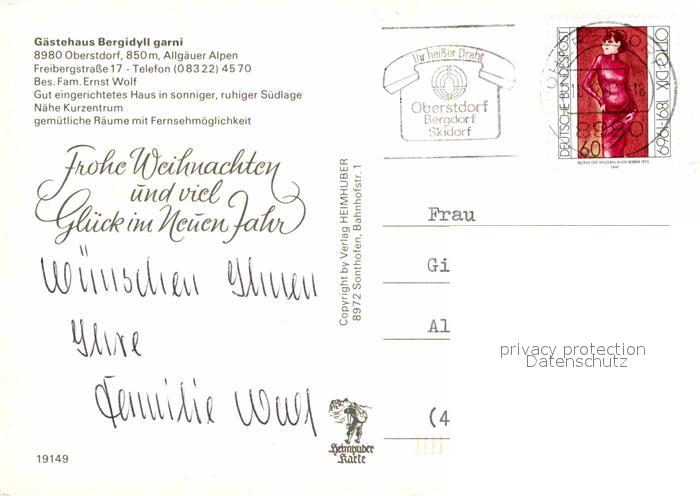 Gästehaus Bergidyll garni
8980 Oberstdorf, 850 m, Allgäuer Alpen
Freibergstraße 17 - Telefon (08322) 4570
Bes. Fam. Ernst Wolf
Gut eingerichtetes Haus in sonniger, ruhiger Südlage
Nähe Kurzentrum
gemütliche Räume mit Fernsehmöglichkeit
Frohe Weihnachten
und viel
Glück im Neuen Jahr
Wünschen Ihnen
Ihre
Familie Wolf
19149
Copyright by Verlag HEIMHUBER
8972 Sonthofen, Bahnhofstr. 1
Heimhuber
Karte
Ihr heißer Draht
Oberstdorf
Bergdorf
Skidorf
8980
DEUTSCHE BUNDESPOST
60
OTTO DIX 1891-1969
Frau
Gi
Al
(4
privacy protection
Datenschutz